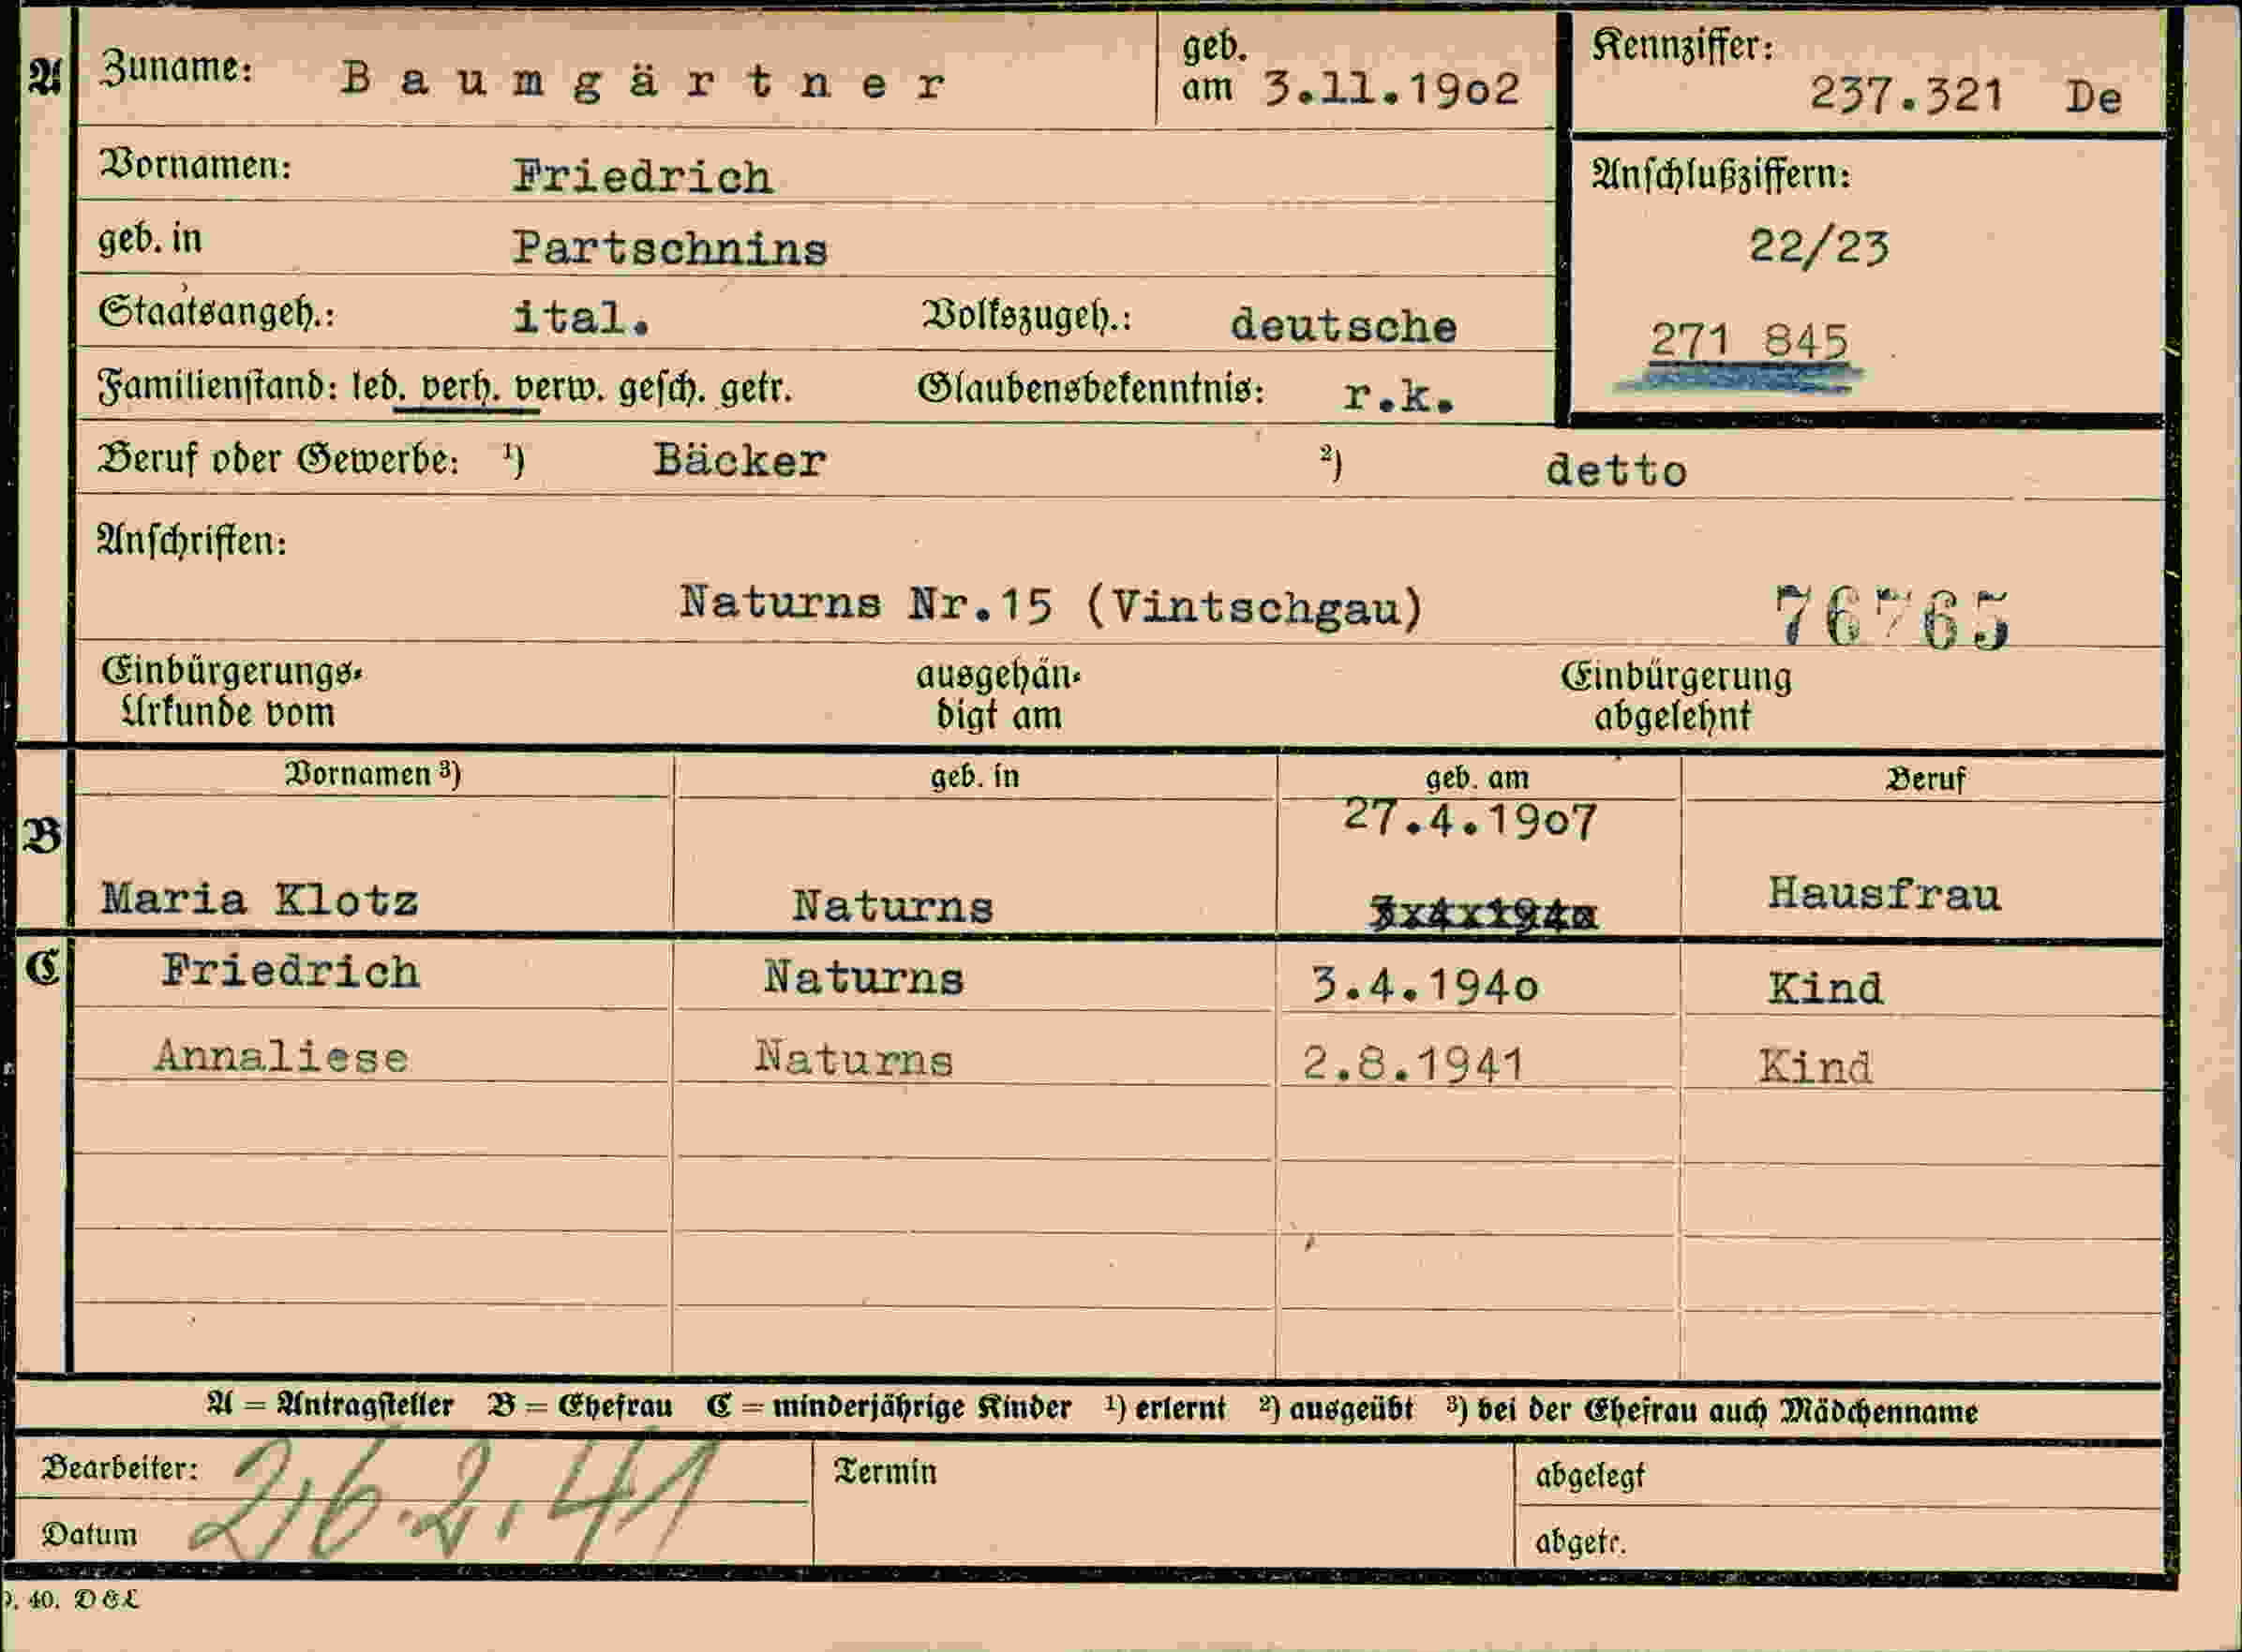 A Zuname: Baumgärtner geb. am 3.11.1902 Kennziffer: 237.321 De
Vornamen: Friedrich Anschlußziffern:
geb. in Partschnins 22/23
Staatsangeh.: ital. Volkszugeh.: deutsche 271 845
Familienstand: led. verh. verw. gesch. getr. Glaubensbekenntnis: r.k.
Beruf oder Gewerbe: ¹) Bäcker ²) detto
Anschriften:
Naturns Nr.15 (Vintschgau) 76765
Einbürgerungs- ausgehän- Einbürgerung
Urkunde vom digt am abgelehnt
Vornamen ³) geb. in geb. am Beruf
B 27.4.1907
Maria Klotz Naturns 3x4x1940 Hausfrau
C Friedrich Naturns 3.4.1940 Kind
Annaliese Naturns 2.8.1941 Kind
A = Antragsteller B = Ehefrau C = minderjährige Kinder ¹) erlernt ²) ausgeübt ³) bei der Ehefrau auch Mädchenname
Bearbeiter: Termin abgelegt
Datum 26.2.41 abgetr.
40. D&L